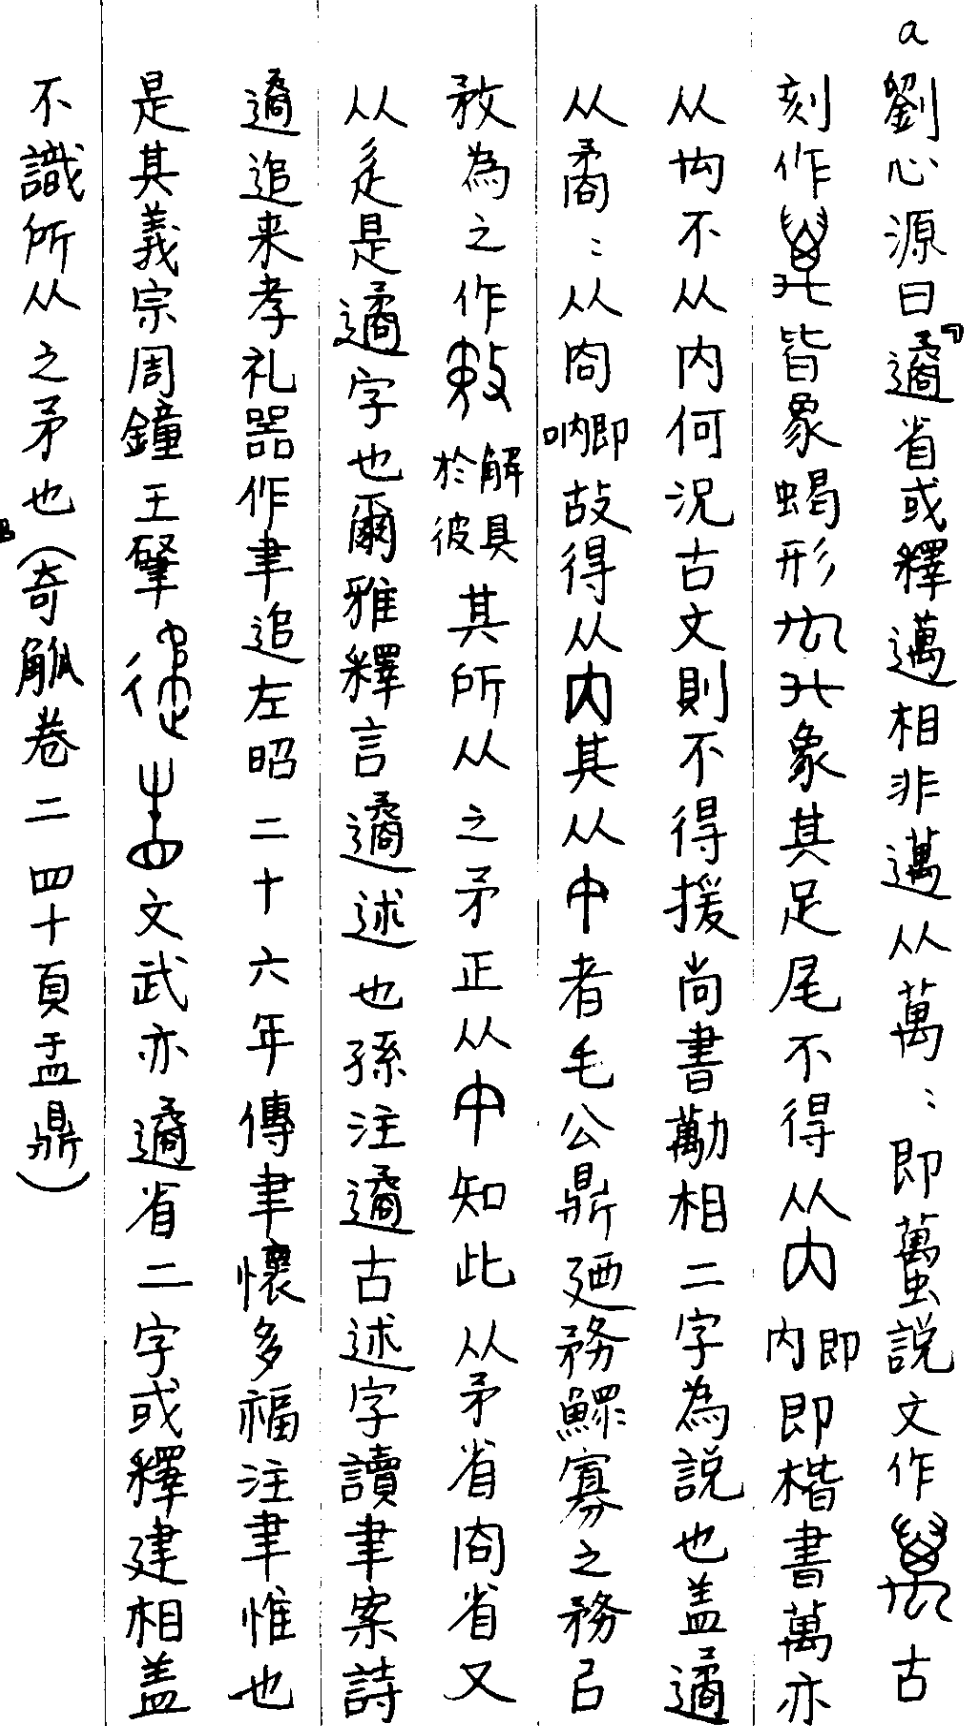 a
劉心源曰遹省或釋邁相非邁从萬：即蠆説文作古
刻作皆象蝎形象其足尾不得从内内即即楷書萬亦
从禸不从内何況古文則不得援尚書勱相二字為説也盖遹
从矞：从㕯吶即故得从内其从中者毛公鼎廼務鰥寡之務㠯
敄為之作於彼解具其所从之矛正从中知此从矛省㕯省又
从辵是遹字也爾雅釋言遹述也孫注遹古述字讀聿案詩
遹追来孝礼器作聿追左昭二十六年傳聿懷多福注聿惟也
是其義宗周鐘王肇文武亦遹省二字或釋建相盖
不識所从之矛也（奇觚卷二四十頁盂鼎）